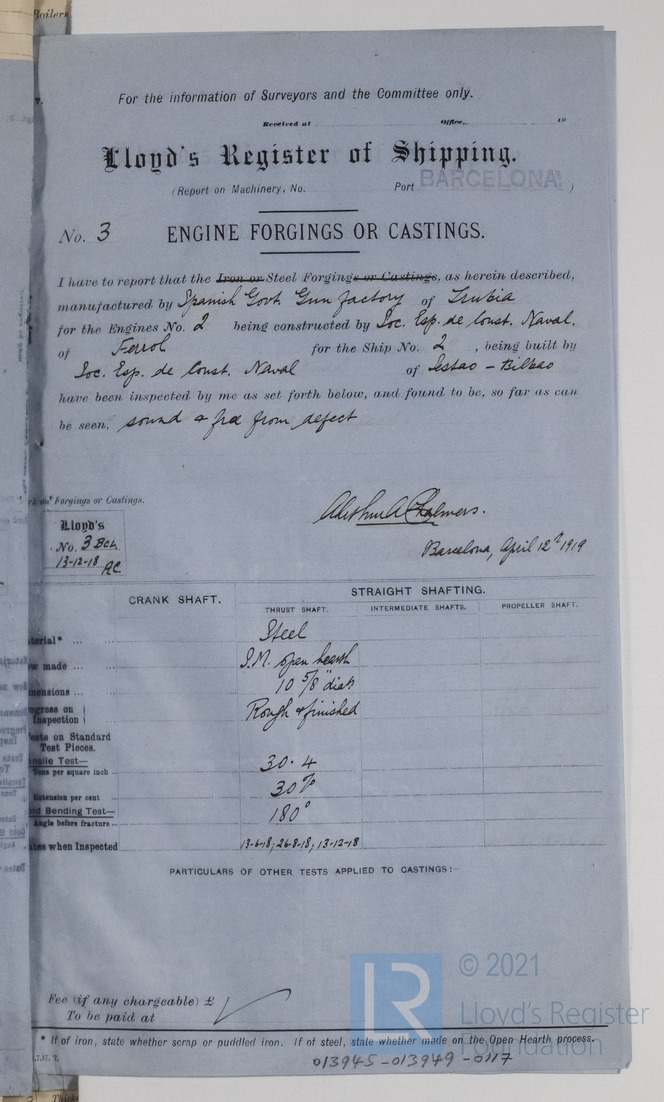 Boilers
For the information of Surveyors and the Committee only.
Received at Office, 19
Lloyd's Register of Shipping.
(Report on Machinery, No. Port BARCELONA )
No. 3 ENGINE FORGINGS OR CASTINGS.
I have to report that the Iron or Steel Forgings or Castings, as herein described,
manufactured by Spanish Govt Gun factory of Trubia
for the Engines No. 2 being constructed by Soc. Esp. de Const. Naval.
of Ferrol for the Ship No. 2, being built by
Soc. Esp. de Const. Naval of Sestao - Bilbao
have been inspected by me as set forth below, and found to be, so far as can
be seen, sound & free from defect
Forgings or Castings.
Lloyd's
No. 3 Bcl.
13-12-18
A.C.
Chalmers.
Barcelona, April 12th 1919
CRANK SHAFT. STRAIGHT SHAFTING.
THRUST SHAFT. INTERMEDIATE SHAFTS. PROPELLER SHAFT.
terial* ... Steel
w made ... S.M. open hearth
mensions ... 10 5/8" diar
ogress on Inspection Rough & finished
ests on Standard
Test Pieces.
nsile Test—
Tons per square inch ... 30.4
Extension per cent ... 30%
ld Bending Test—
Angle before fracture ... 180°
ates when Inspected 13-6-18; 26-8-18; 13-12-18
PARTICULARS OF OTHER TESTS APPLIED TO CASTINGS:—
Fee (if any chargeable) £
To be paid at
© 2021
Lloyd's Register
Foundation
LR
* If of iron, state whether scrap or puddled iron. If of steel, state whether made on the Open Hearth process.
013945-013949-0117